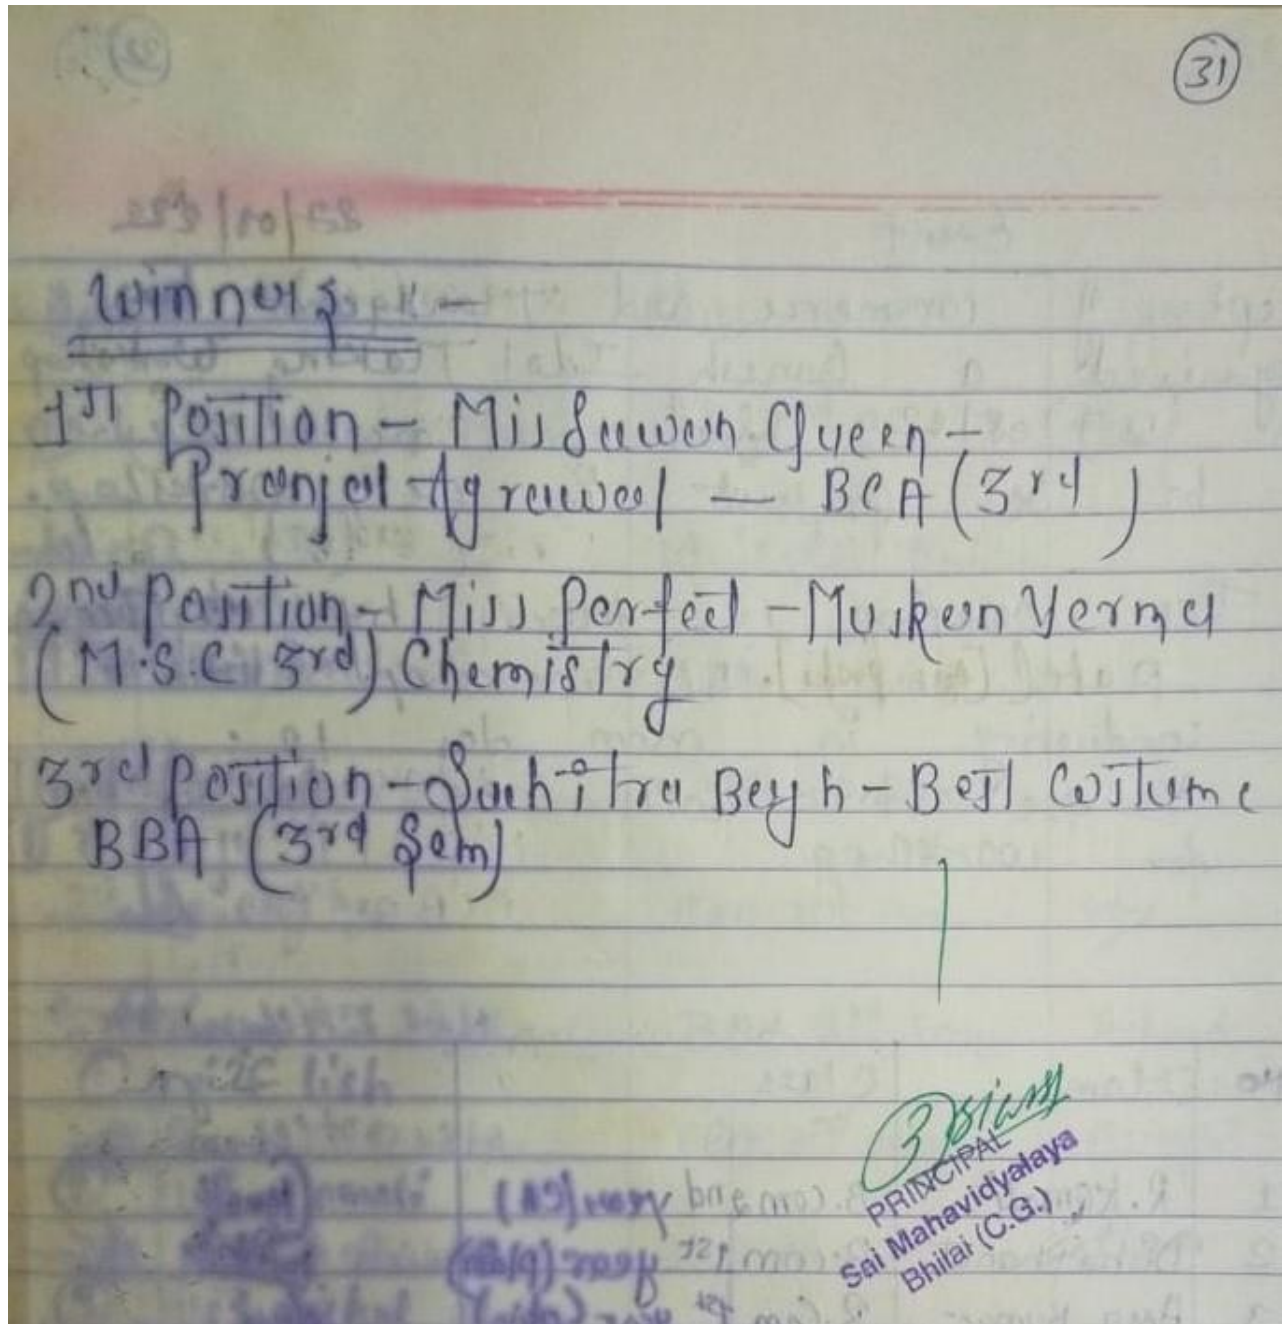 31
Winners -
1st Position - Miss Sawan Queen -
Pranjal Agrawal - BCA (3rd)
2nd Position - Miss Perfect - Muskan Verma
(M.S.C 3rd) Chemistry
3rd Position - Suchitra Beyh - Best Costume
BBA (3rd Sem)
PRINCIPAL
Sai Mahavidyalaya
Bhilai (C.G.)